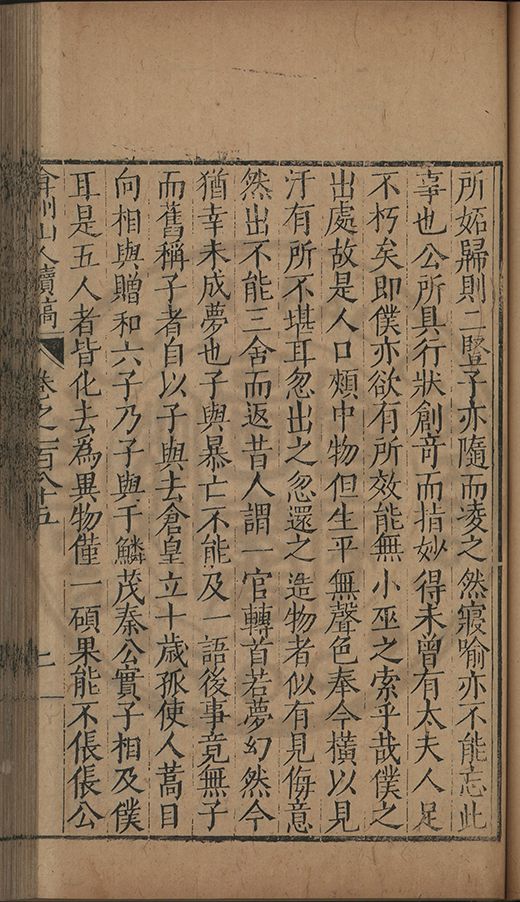 所妬歸則二豎子亦隨而凌之然寢喻亦不能忘此
辜也公所具行狀創奇而指妙得未曾有太夫人足
不朽矣即僕亦欲有所效能無小巫之索乎哉僕之
出處故是人口頰中物但生平無聲色奉今橫以見
汙有所不堪耳忽出之忽還之造物者似有見侮意
然出不能三舍而返昔人謂一官轉首若夢幻然今
猶幸未成夢也子與暴亡不能及一語後事竟無子
而舊稱子者自以子與去倉皇立十歲孤使人蒿目
向相與贈和六子乃子與于鱗茂秦公實子相及僕
耳是五人者皆化去為異物僅一碩果能不倀倀公
弇州山人續稿 卷之一百八十五 上